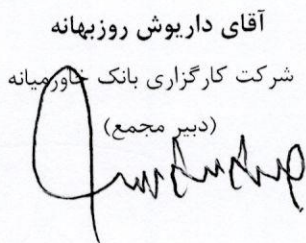 آقای داریوش روزبهانه
شرکت کارگزاری بانک خاورمیانه
(دبیر مجمع)